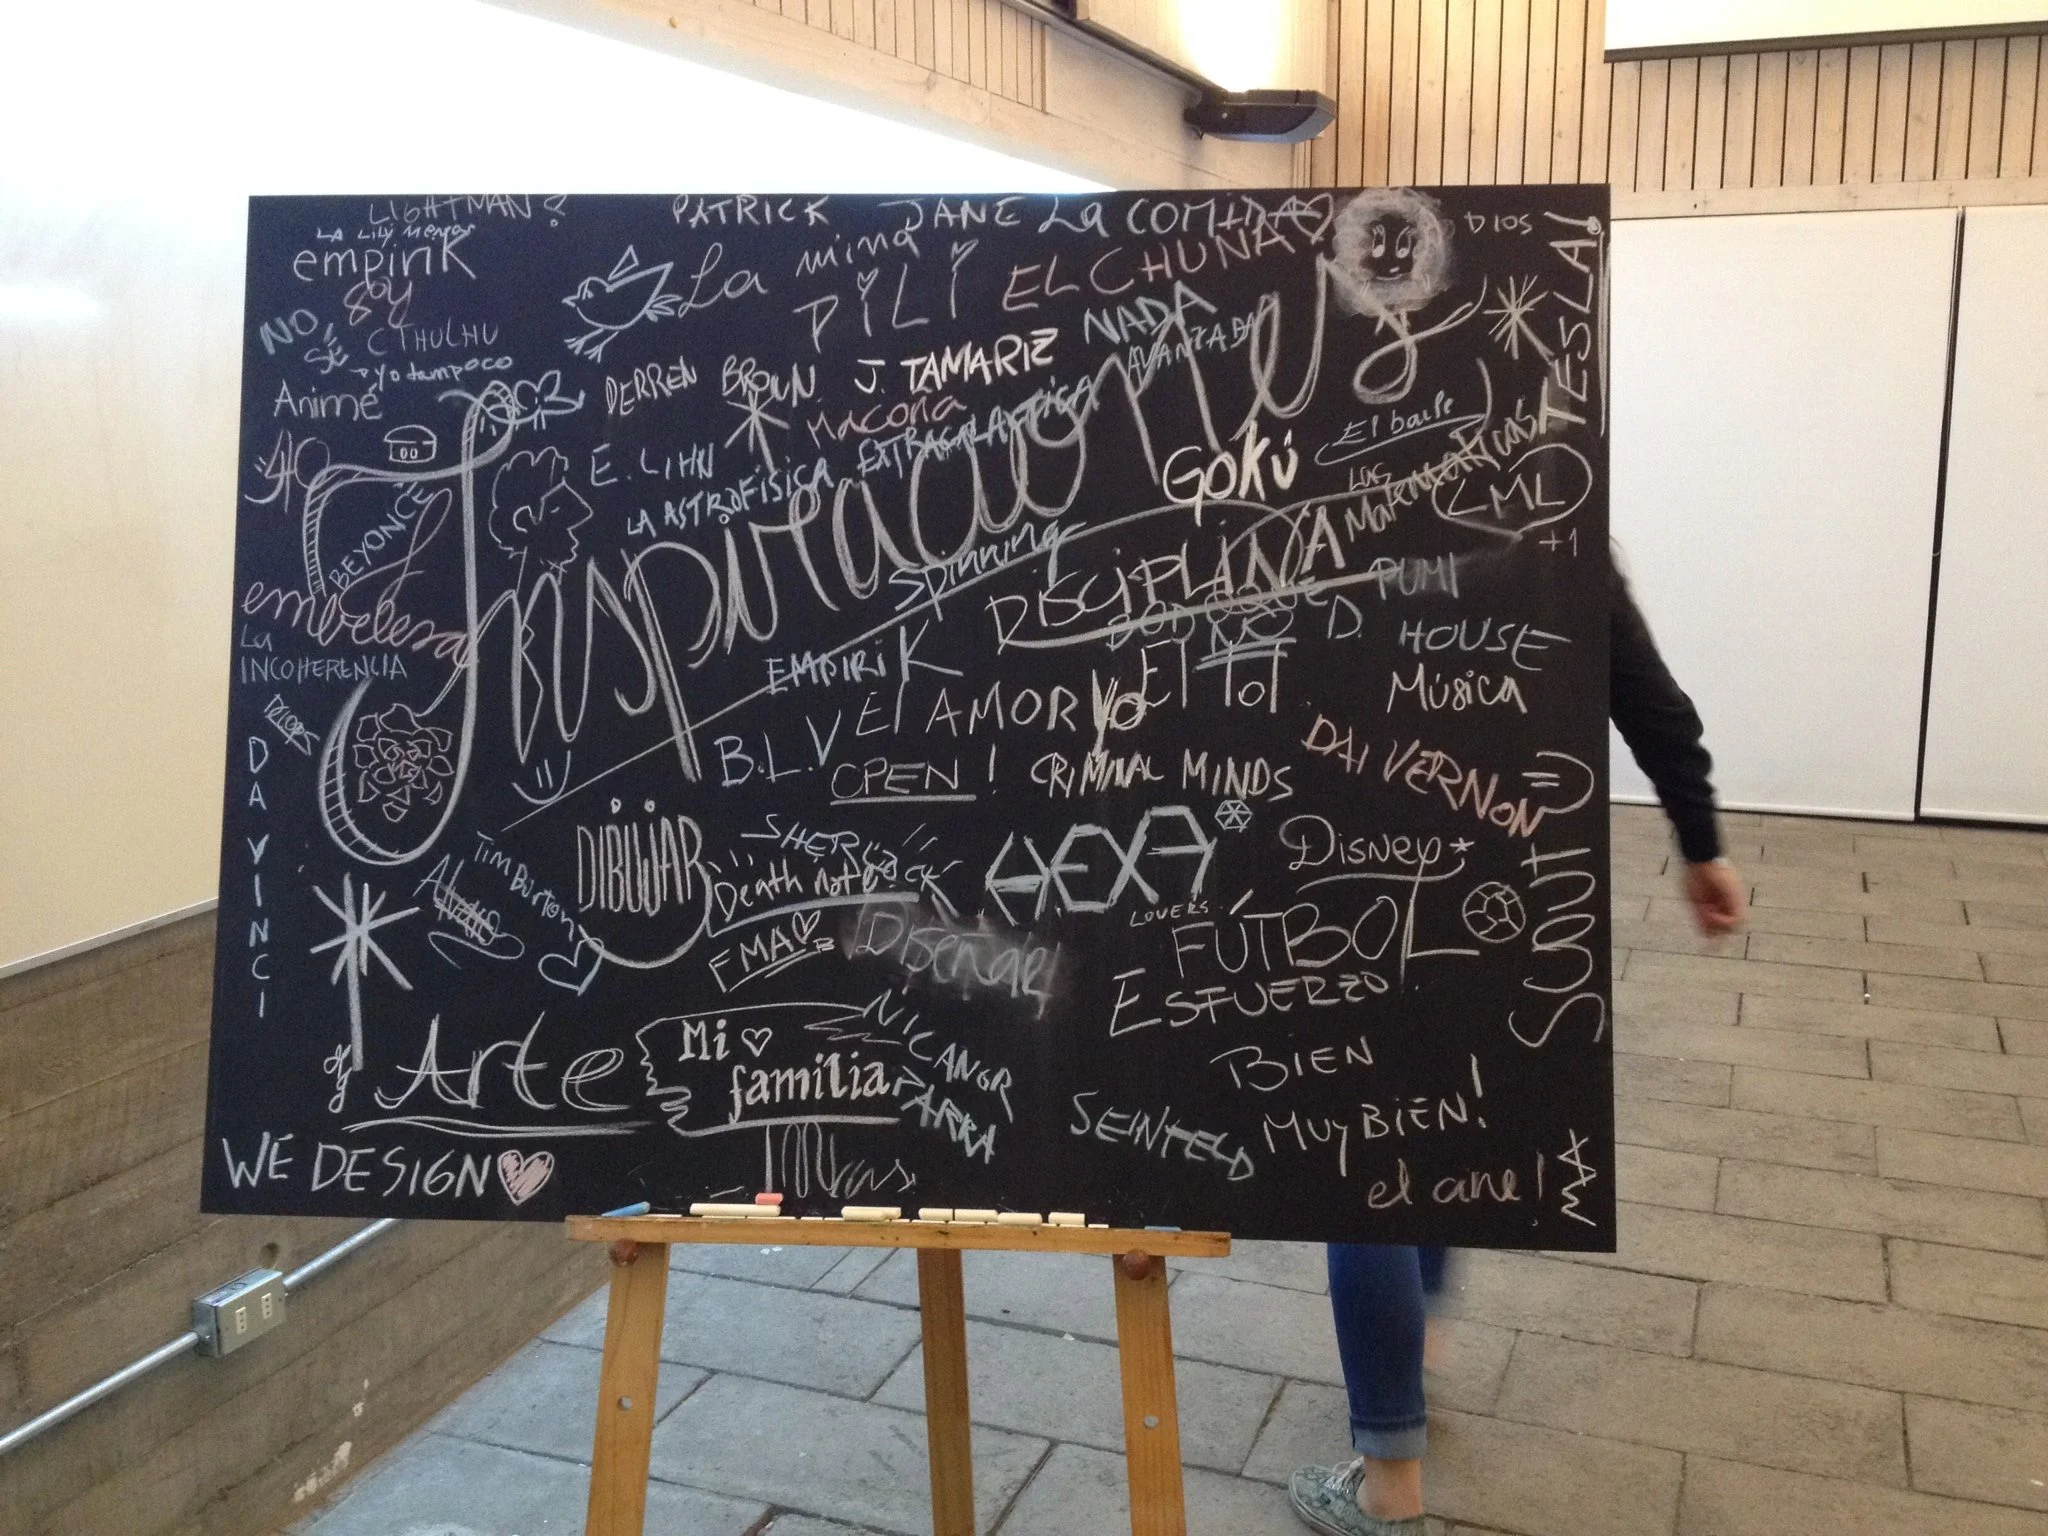 LIGHTMAN?
PATRICK JANE
La COMIDA
DIOS
TESLA!
LA Lily
empink
soy
CTHULHU
NO SÉ
yo tampoco
Animé
La mina
PiLi
EL CHUNA
NADA
AVANZADA
DERREN BROWN
J. TAMARIZ
Macoña
E. LIHN
LA ASTROFÍSICA EXTRAGALÁCTICA
Inspiraciones
GOKÚ
El baile
LAS Matematicas
LML
+1
BEYONCÉ
embelesa
La INCOHERENCIA
spinning
DISCIPLINA
PUMI
HOUSE
Música
EMPIRiK
B.L.V
El AMOR
YO
El Tot
OPEN!
CRIMINAL MINDS
DAI VERNON
DA VINCI
Tim Burton
DIBUJAR
SHERLOCK
Death note
FMA
B
Diseñar
HEXA
LOVERS
Disney
FÚTBOL
ESFUERZO.
Arte
Mi familia
NICANOR PARRA
BIEN
MUY BIEN!
SEINFELD
WE DESIGN